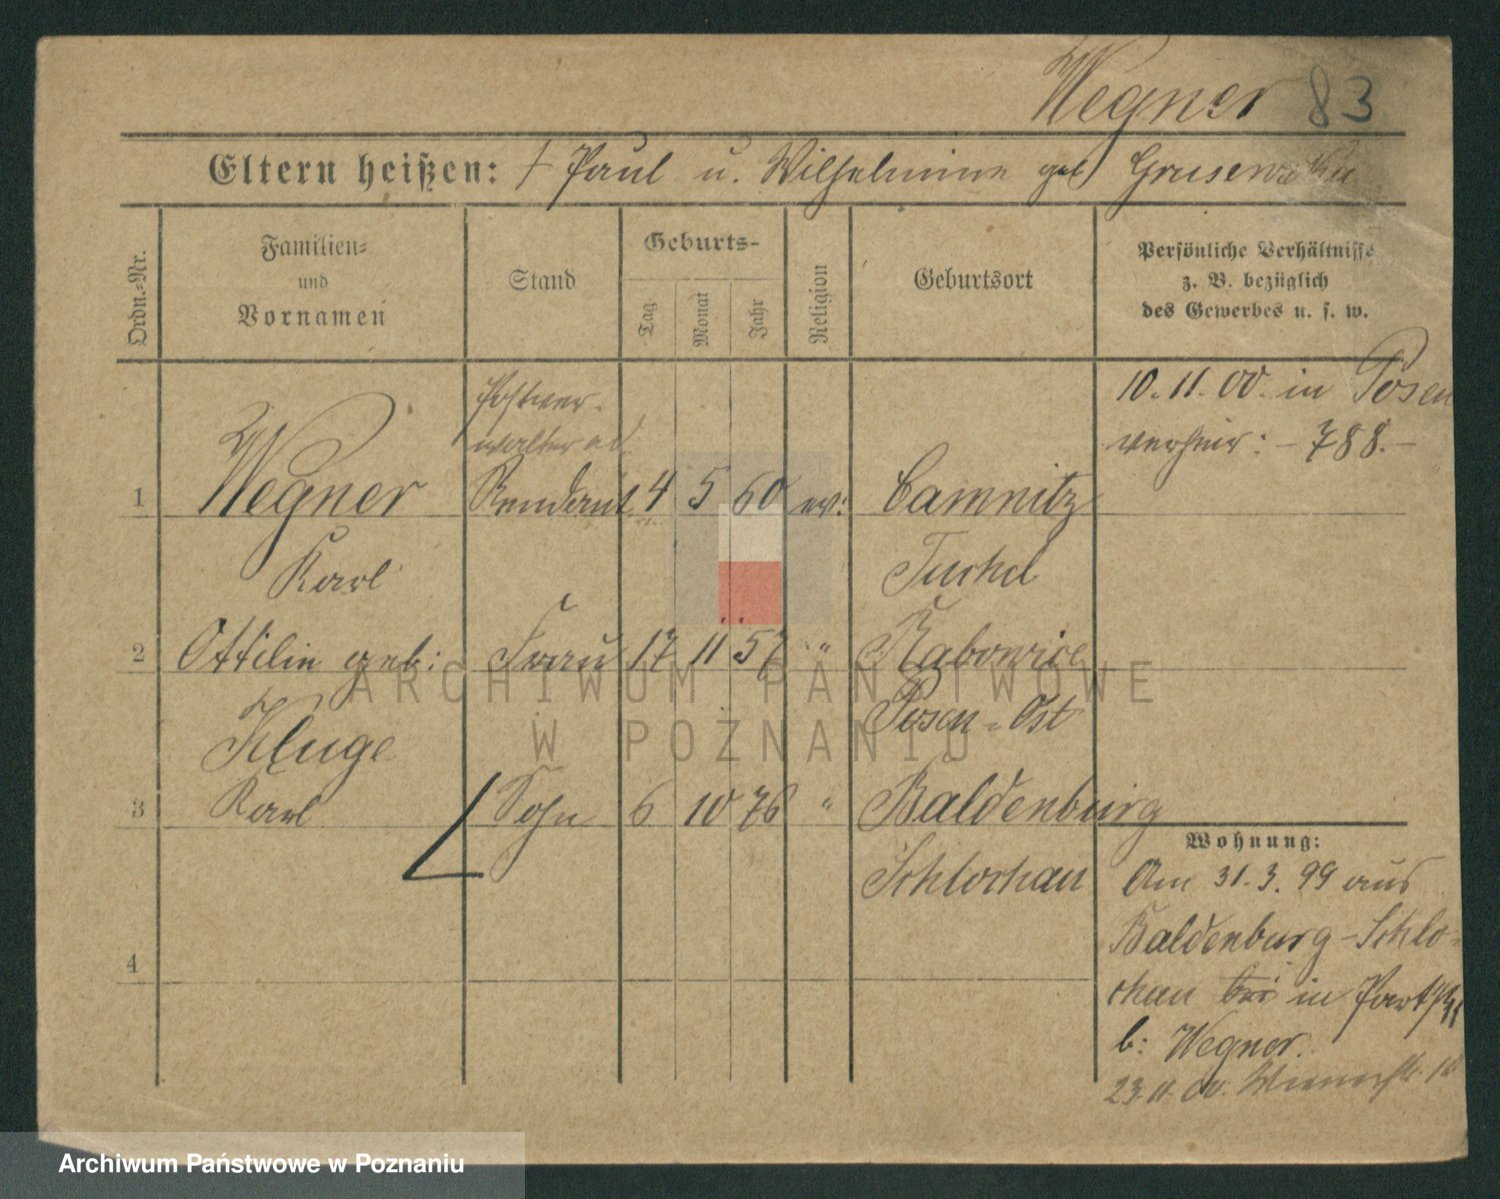 Wegner 83
Eltern heißen: † Paul u. Wilhelmine geb
Ordn.-Nr.
Familien- und Vornamen
Stand
Geburts-
Tag
Monat
Jahr
Religion
Geburtsort
Persönliche Verhältnisse
z. B. bezüglich
des Gewerbes u. s. w.
Postver-
walter
1 Wegner Rendant 4 5 60 ev: Camnitz
Karl Tuchel
10. 11. 00. in Posen
verheir: - 788. -
2 Ottilie geb: Frau 17 11 57 " Rabowice
Kluge Posen-Ost
3 Karl Sohn 6 10 76 " Baldenburg
Schlochau
4
Wohnung:
Am 31.3.99 aus
Baldenburg-Schlo-
chau bei in
b: Wegner.
23.11.00.
ARCHIWUM PAŃSTWOWE
W POZNANIU
Archiwum Państwowe w Poznaniu